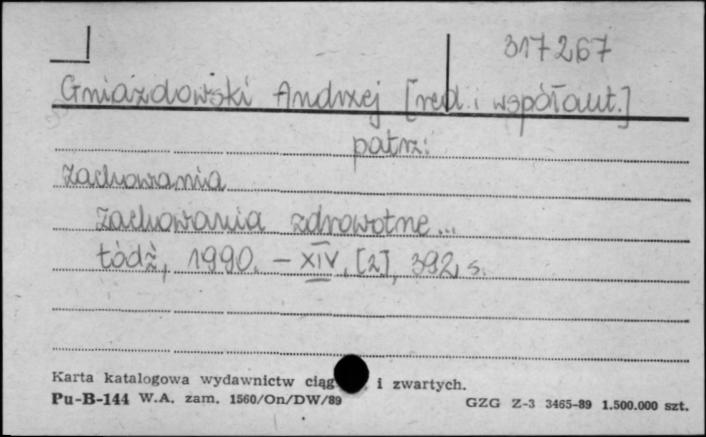 317267
Gniazdowski Andrzej [red. i współaut.]
patrz:
Zachowania
Zachowania zdrowotne...
Łódź, 1990. – XIV, [2], 392, s.
Karta katalogowa wydawnictw ciąg i zwartych.
Pu-B-144 W.A. zam. 1560/On/DW/89 GZG Z-3 3465-89 1.500.000 szt.